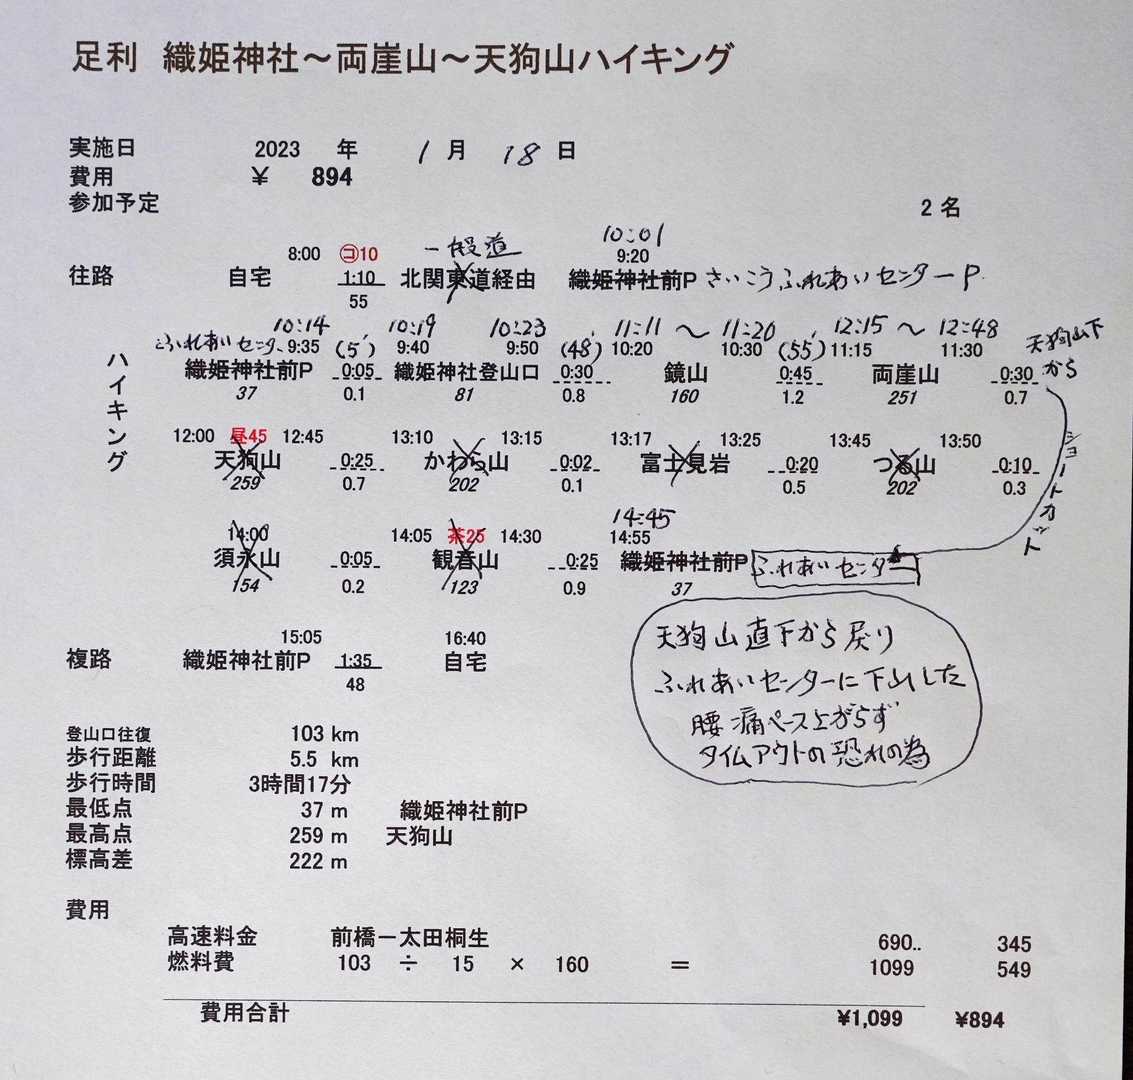 足利 織姫神社～両崖山～天狗山ハイキング
実施日 2023 年 1 月 18 日
費用 ¥ 894
参加予定 2 名
8:00 ㋙10 一般道 10:01
9:20
往路 自宅 1:10 北関東道経由 織姫神社前P さいこうふれあいセンターP
55
ハイキング
10:14 10:19 10:23 11:11 ～ 11:20 12:15 ～ 12:48 天狗山下から
ふれあいセンター 9:35 (5') 9:40 9:50 (48') 10:20 10:30 (55') 11:15 11:30
織姫神社前P 0:05 織姫神社登山口 0:30 鏡山 0:45 両崖山 0:30
37 0.1 81 0.8 160 1.2 251 0.7
ショートカット
12:00 昼45 12:45 13:10 13:15 13:17 13:25 13:45 13:50
天狗山 0:25 かわら山 0:02 富士見岩 0:20 つる山 0:10
259 0.7 202 0.1 0.5 202 0.3
14:45
14:00 14:05 茶25 14:30 14:55
須永山 0:05 観音山 0:25 織姫神社前P ふれあいセンター
154 0.2 123 0.9 37
15:05 16:40
複路 織姫神社前P 1:35 自宅
48
天狗山直下から戻り
ふれあいセンターに下山した
腰痛ペース上がらず
タイムアウトの恐れの為
登山口往復 103 km
歩行距離 5.5 km
歩行時間 3時間17分
最低点 37 m 織姫神社前P
最高点 259 m 天狗山
標高差 222 m
費用
高速料金 前橋－太田桐生 690.. 345
燃料費 103 ÷ 15 × 160 ＝ 1099 549
費用合計 ¥1,099 ¥894